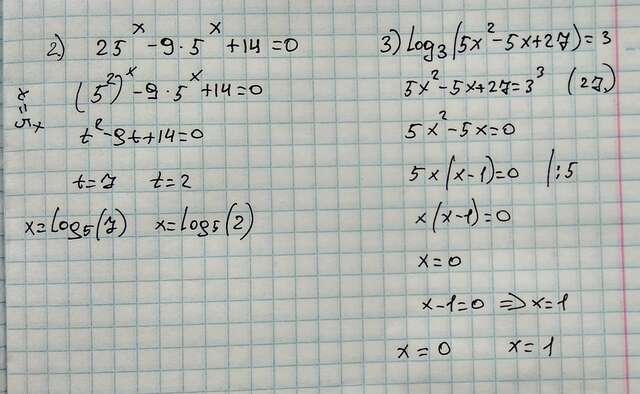 2) 25^x - 9·5^x + 14 = 0
(5^2)^x - 9·5^x + 14 = 0
t=5^x
t^2 - 9t + 14 = 0
t = 7 t = 2
x = log5(7) x = log5(2)
3) log3(5x^2 - 5x + 27) = 3
5x^2 - 5x + 27 = 3^3 (27)
5x^2 - 5x = 0
5x(x-1) = 0 |:5
x(x-1) = 0
x = 0
x-1 = 0 => x = 1
x = 0 x = 1